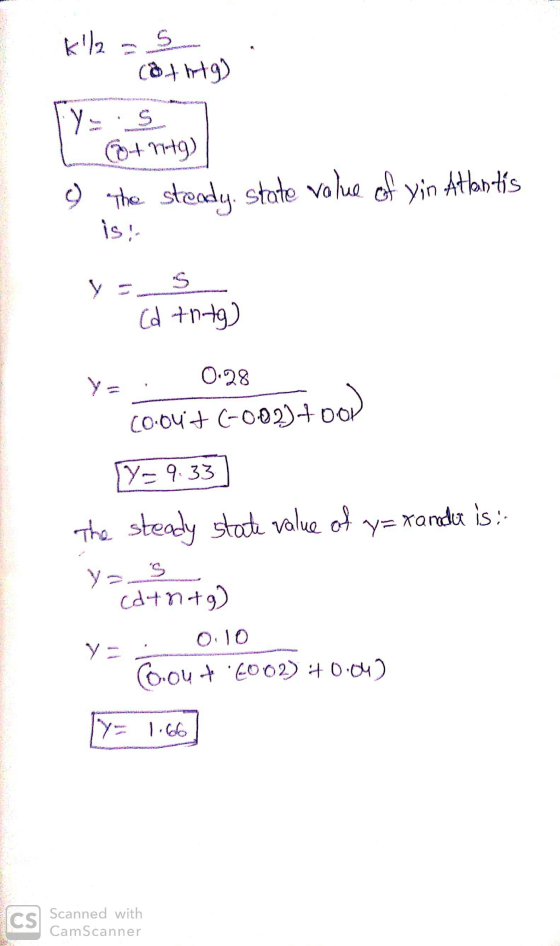 k^1/2 = s
(δ+n+g)
y = s
(δ+n+g)
c) The steady state value of y in Atlantis
is:-
y = s
(d+n+g)
y = 0.28
(0.04+(-0.02)+0.01)
y = 9.33
The steady state value of y = xanadu is:-
y = s
(d+n+g)
y = 0.10
(0.04+(-0.02)+0.04)
y = 1.66
CS Scanned with
CamScanner